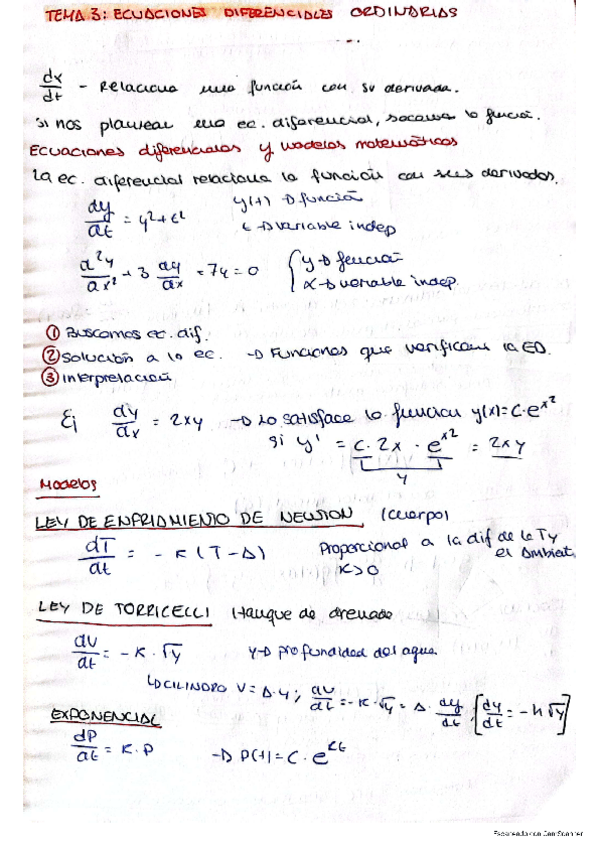 TEMA 3: ECUACIONES DIFERENCIALES ORDINARIAS
dx/dt - Relaciona una función con su derivada.
Si nos plantean una ec. diferencial, sacamos la función.
Ecuaciones diferenciales y modelos matemáticos
La ec. diferencial relaciona la función con sus derivadas.
dy/dt = y²+t² y(t) → función
t → variable indep
d²y/dx² + 3 dy/dx = 7y = 0 { y → función
x → variable indep.
① Buscamos ec. dif.
② Solución a la ec. → Funciones que verifican la ED.
③ Interpretación
Ej dy/dx = 2xy → Lo satisface la función y(x) = C·e^x²
si y' = C·2x·e^x² = 2xy
y
Modelos
LEY DE ENFRIAMIENTO DE NEWTON (cuerpo)
dT/dt = -K(T-A) Proporcional a la dif de la T y
el Ambient.
K>0
LEY DE TORRICELLI (tanque de drenado
dV/dt = -K·√y y → profundidad del agua
↳ CILINDRO V = A·y; dV/dt = -K·√y = A·dy/dt; [dy/dt = -h√y]
EXPONENCIAL
dP/dt = K·P → P(t) = C·e^Kt
Escaneado con CamScanner